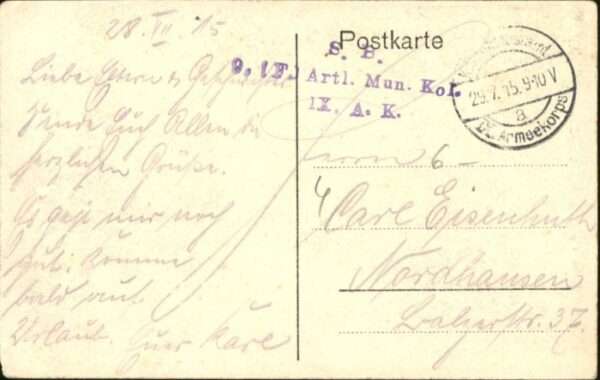 28.VII.15
Liebe Eltern & Geschwister
Sende Euch Allen die
herzlichen Grüße.
Es geht mir noch
gut; komme
bald auf
Urlaub. Euer Karl
Postkarte
S. B.
9. (F.) Artl. Mun. Kol.
IX. A. K.
29.7.15.9-10V
a
IX. Armeekorps
Herrn
Carl Eisenhuth
Nordhausen
Balzerstr. 37.